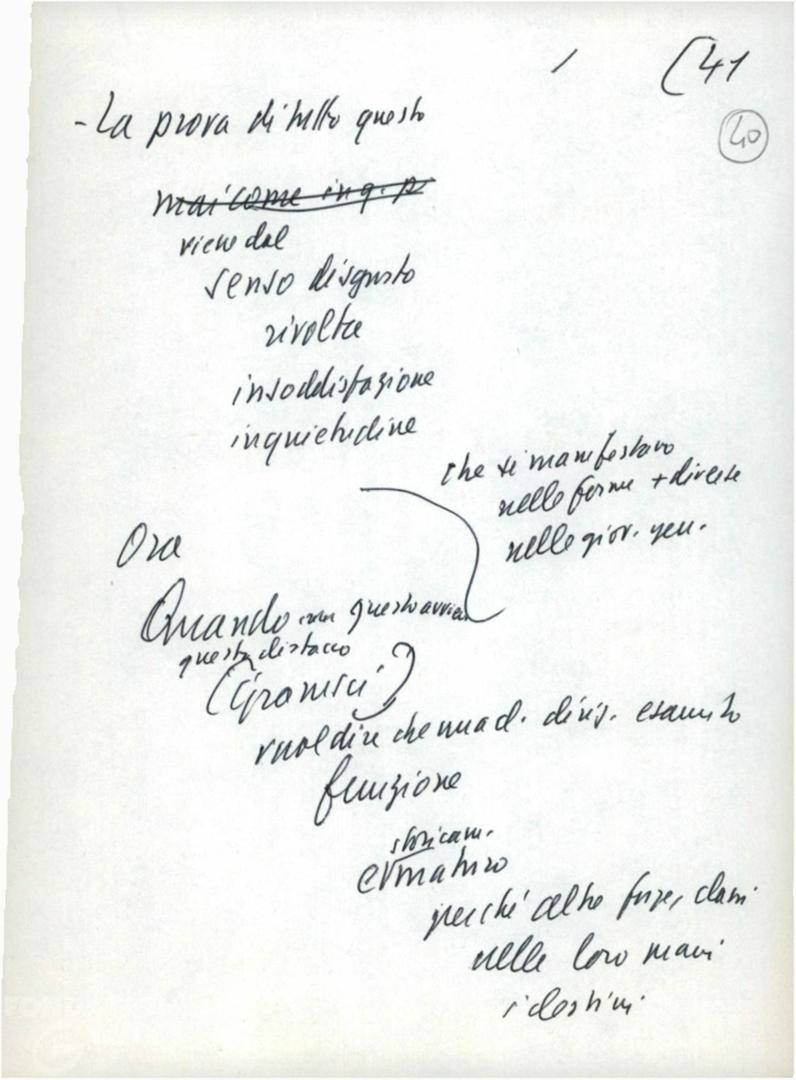 (41
40
- La prova di tutto questo
mai come in q. p
viene dal
senso disgusto
rivolta
insoddisfazione
inquietudine
che si manifestano
nelle forme + diverse
nelle giov. gen.
Ora
Quando con questo avviene
questo distacco
(Gramsci)
vuol dire che una cl. dirig. esaurito
funzione
storicam.
è maturo
perché altre forze, classi
nelle loro mani
i destini